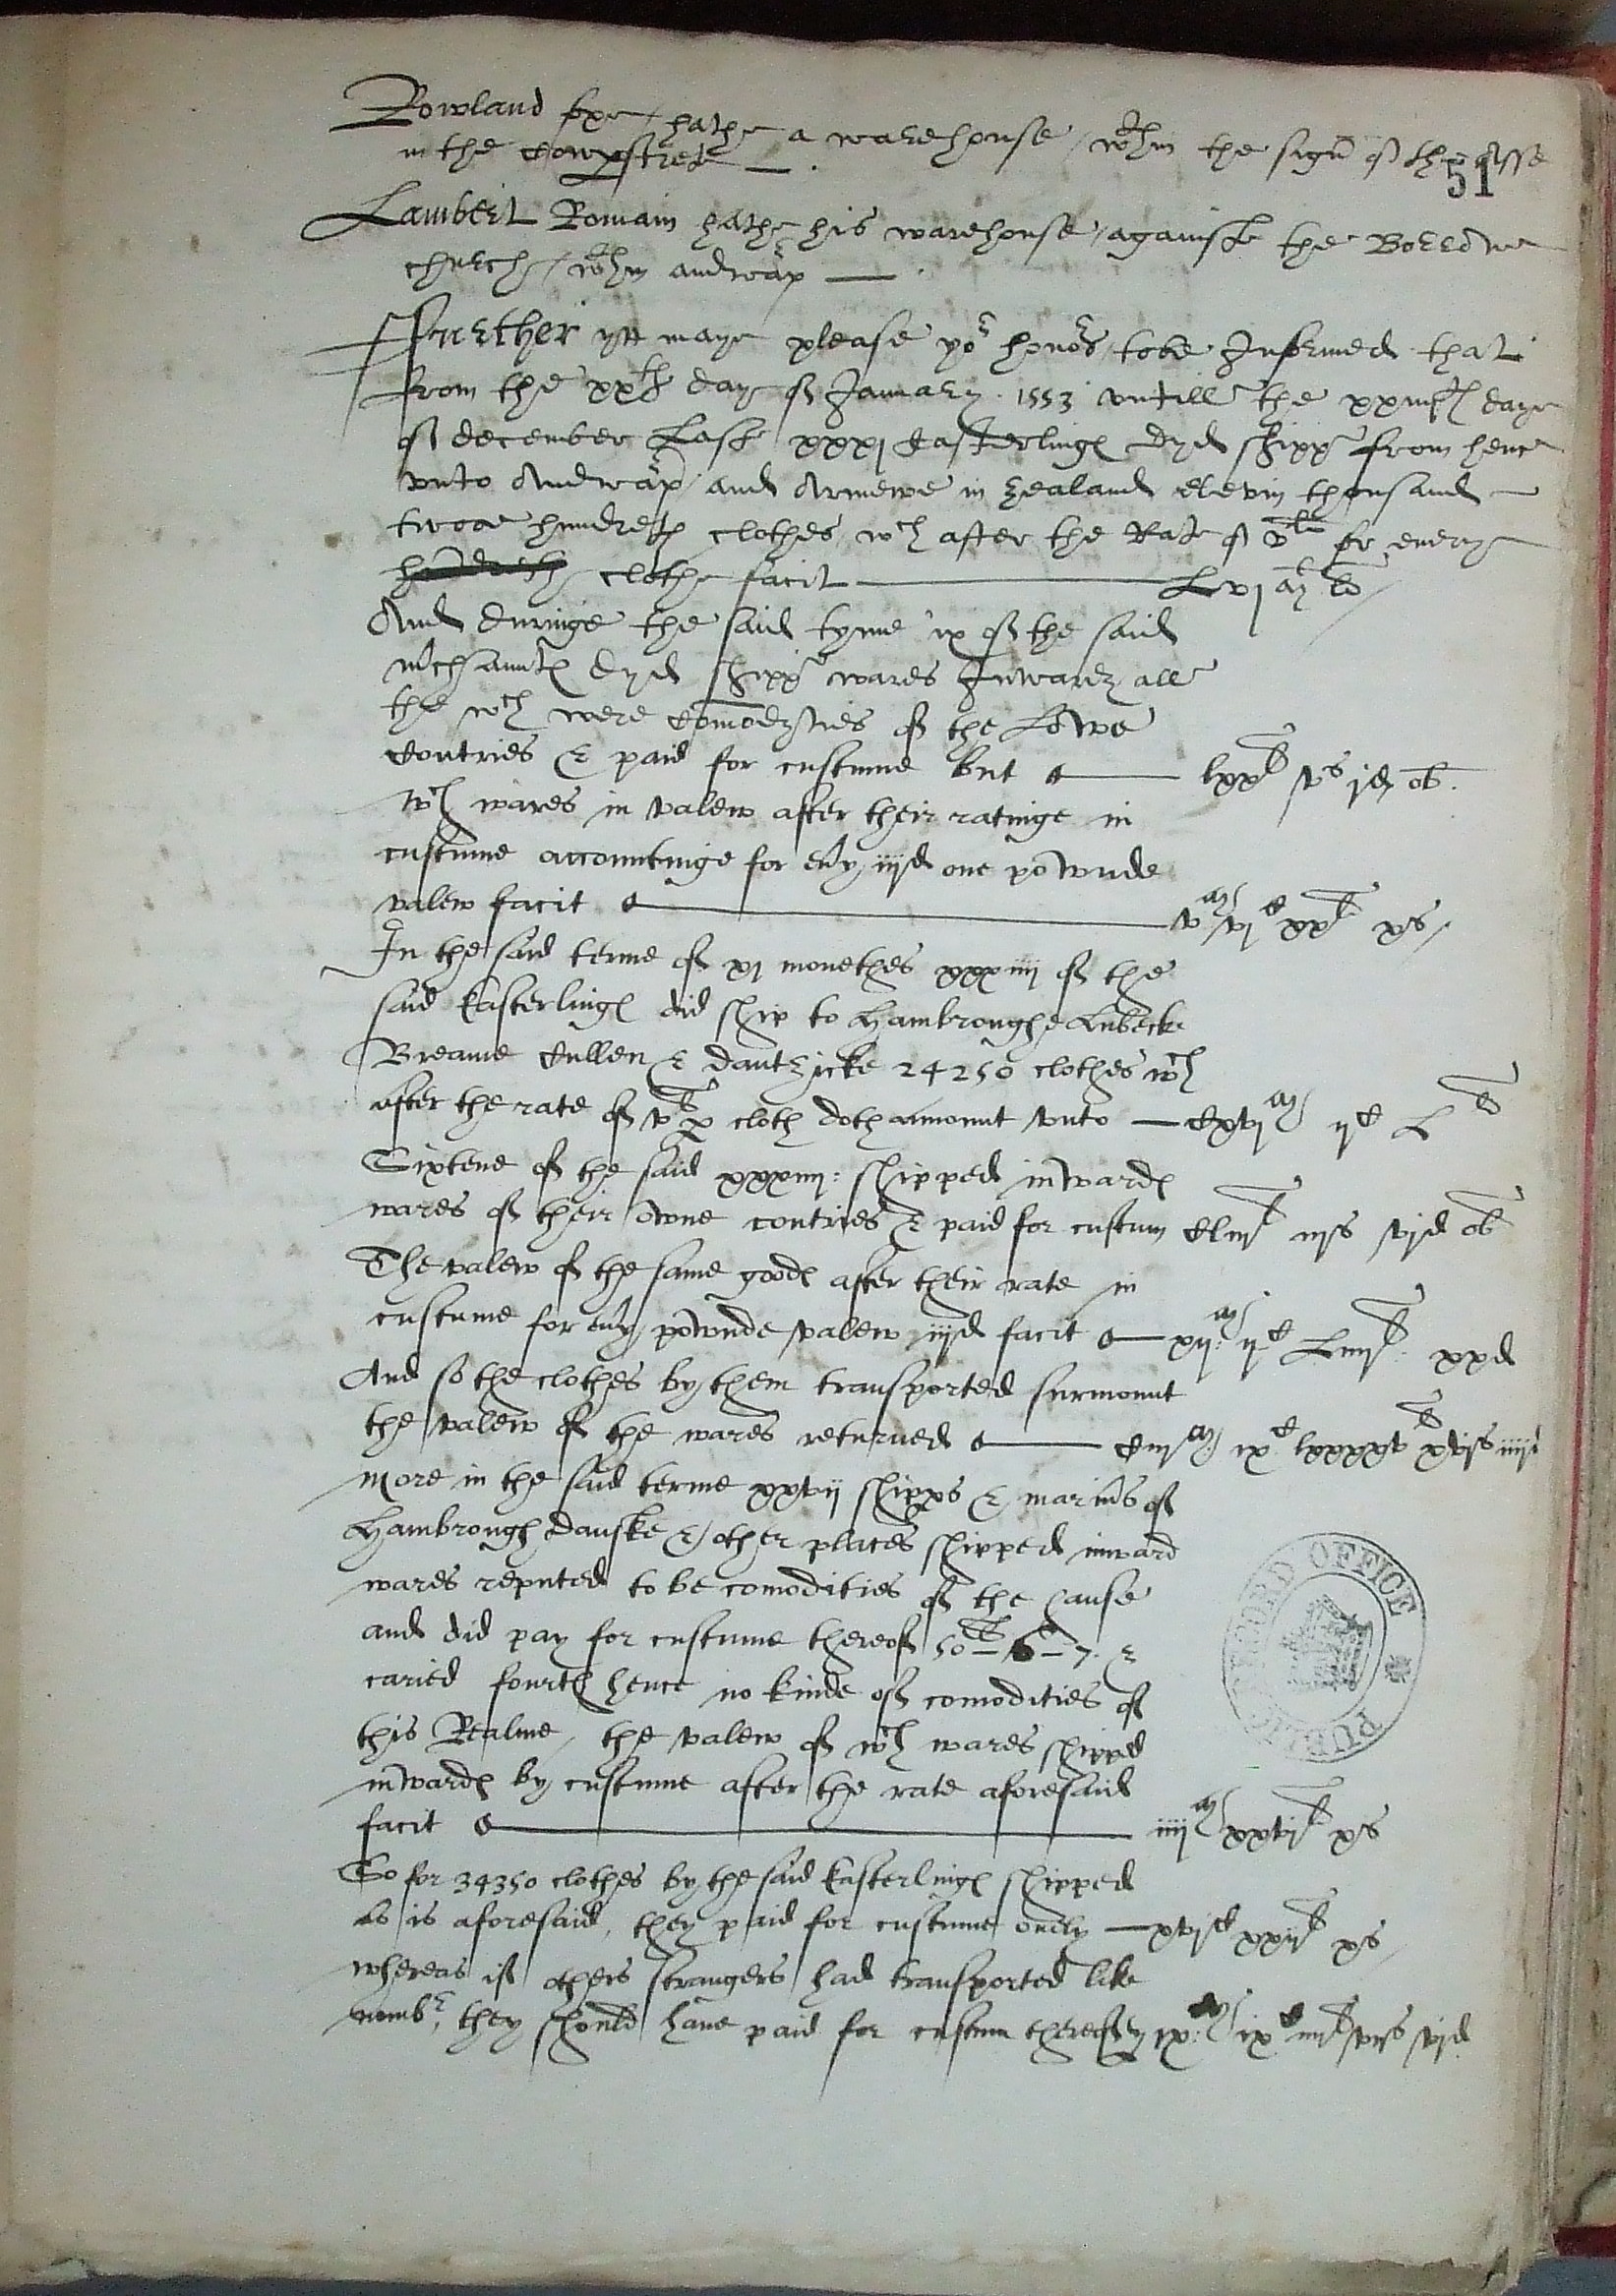 Rowland fxe hathe a warehouse, wthin the sign of the Asse
in the cowpstrete
51
Lambert Romain hathe his warehouse, againste the Boredne
church, wthin andwarp
Further ytt maye please yor honors, to be Informed that
from the xxth day of January 1553 untill the daye
of december Last xxxj Easterlings dyd shippe from hence
unto Andwarp and Armewe in Zealand elevin thousand
twoe hundreth clothes, wch after the Rate of vli for everye
hundreth clothe facit Lvj m li
And duringe the said tyme ix of the said
mrchaunts dyd shippe wares Inwards all
the wch were comodyties of the Lowe
Contries & paid for custume but lxxli vs jd ob.
Wch wares in valew after their ratinge in
custume accountinge for evry iijd one pownde
valew facit vm vjc xxli xs
In the said terme of xj monethes xxxiiij of the
said Easterlings did ship to Hambroughe Lubecke
Breame Cullen & Dantzicke 24250 clothes wch
after the rate of vli p cloth doth amount unto Cxxjm ijc Lli
Sixtene of the said xxxiiij: shipped inwards
wares of their owne contries & paid for custum Cliijli iijs vjd ob
The valew of the same goods after their rate in
custume for evry pownde valew iijd facit xijm ijc Liiijli xxd
And so the clothes by them transported surmount
the valew of the wares returned
more in the said terme xxvij shipps & marinrs of
Hambrough danske & other places shipped inward
wares reputed to be comodities of the hanse
and did pay for custume thereof 50li - 6 - 7. &
caried fourth hence no kinde of comodities of
this Realme, the valew of wch wares shipped
inwards by custume after the rate aforesaid
facit iiijm xxvjli xs
So for 34350 clothes by the said Easterlings shipped
as is aforesaid, they paid for custume onely
whereas if others strangers had transported like
nombr, they should have paid for custum thereof ixm ixc
PUBLIC RECORD OFFICE